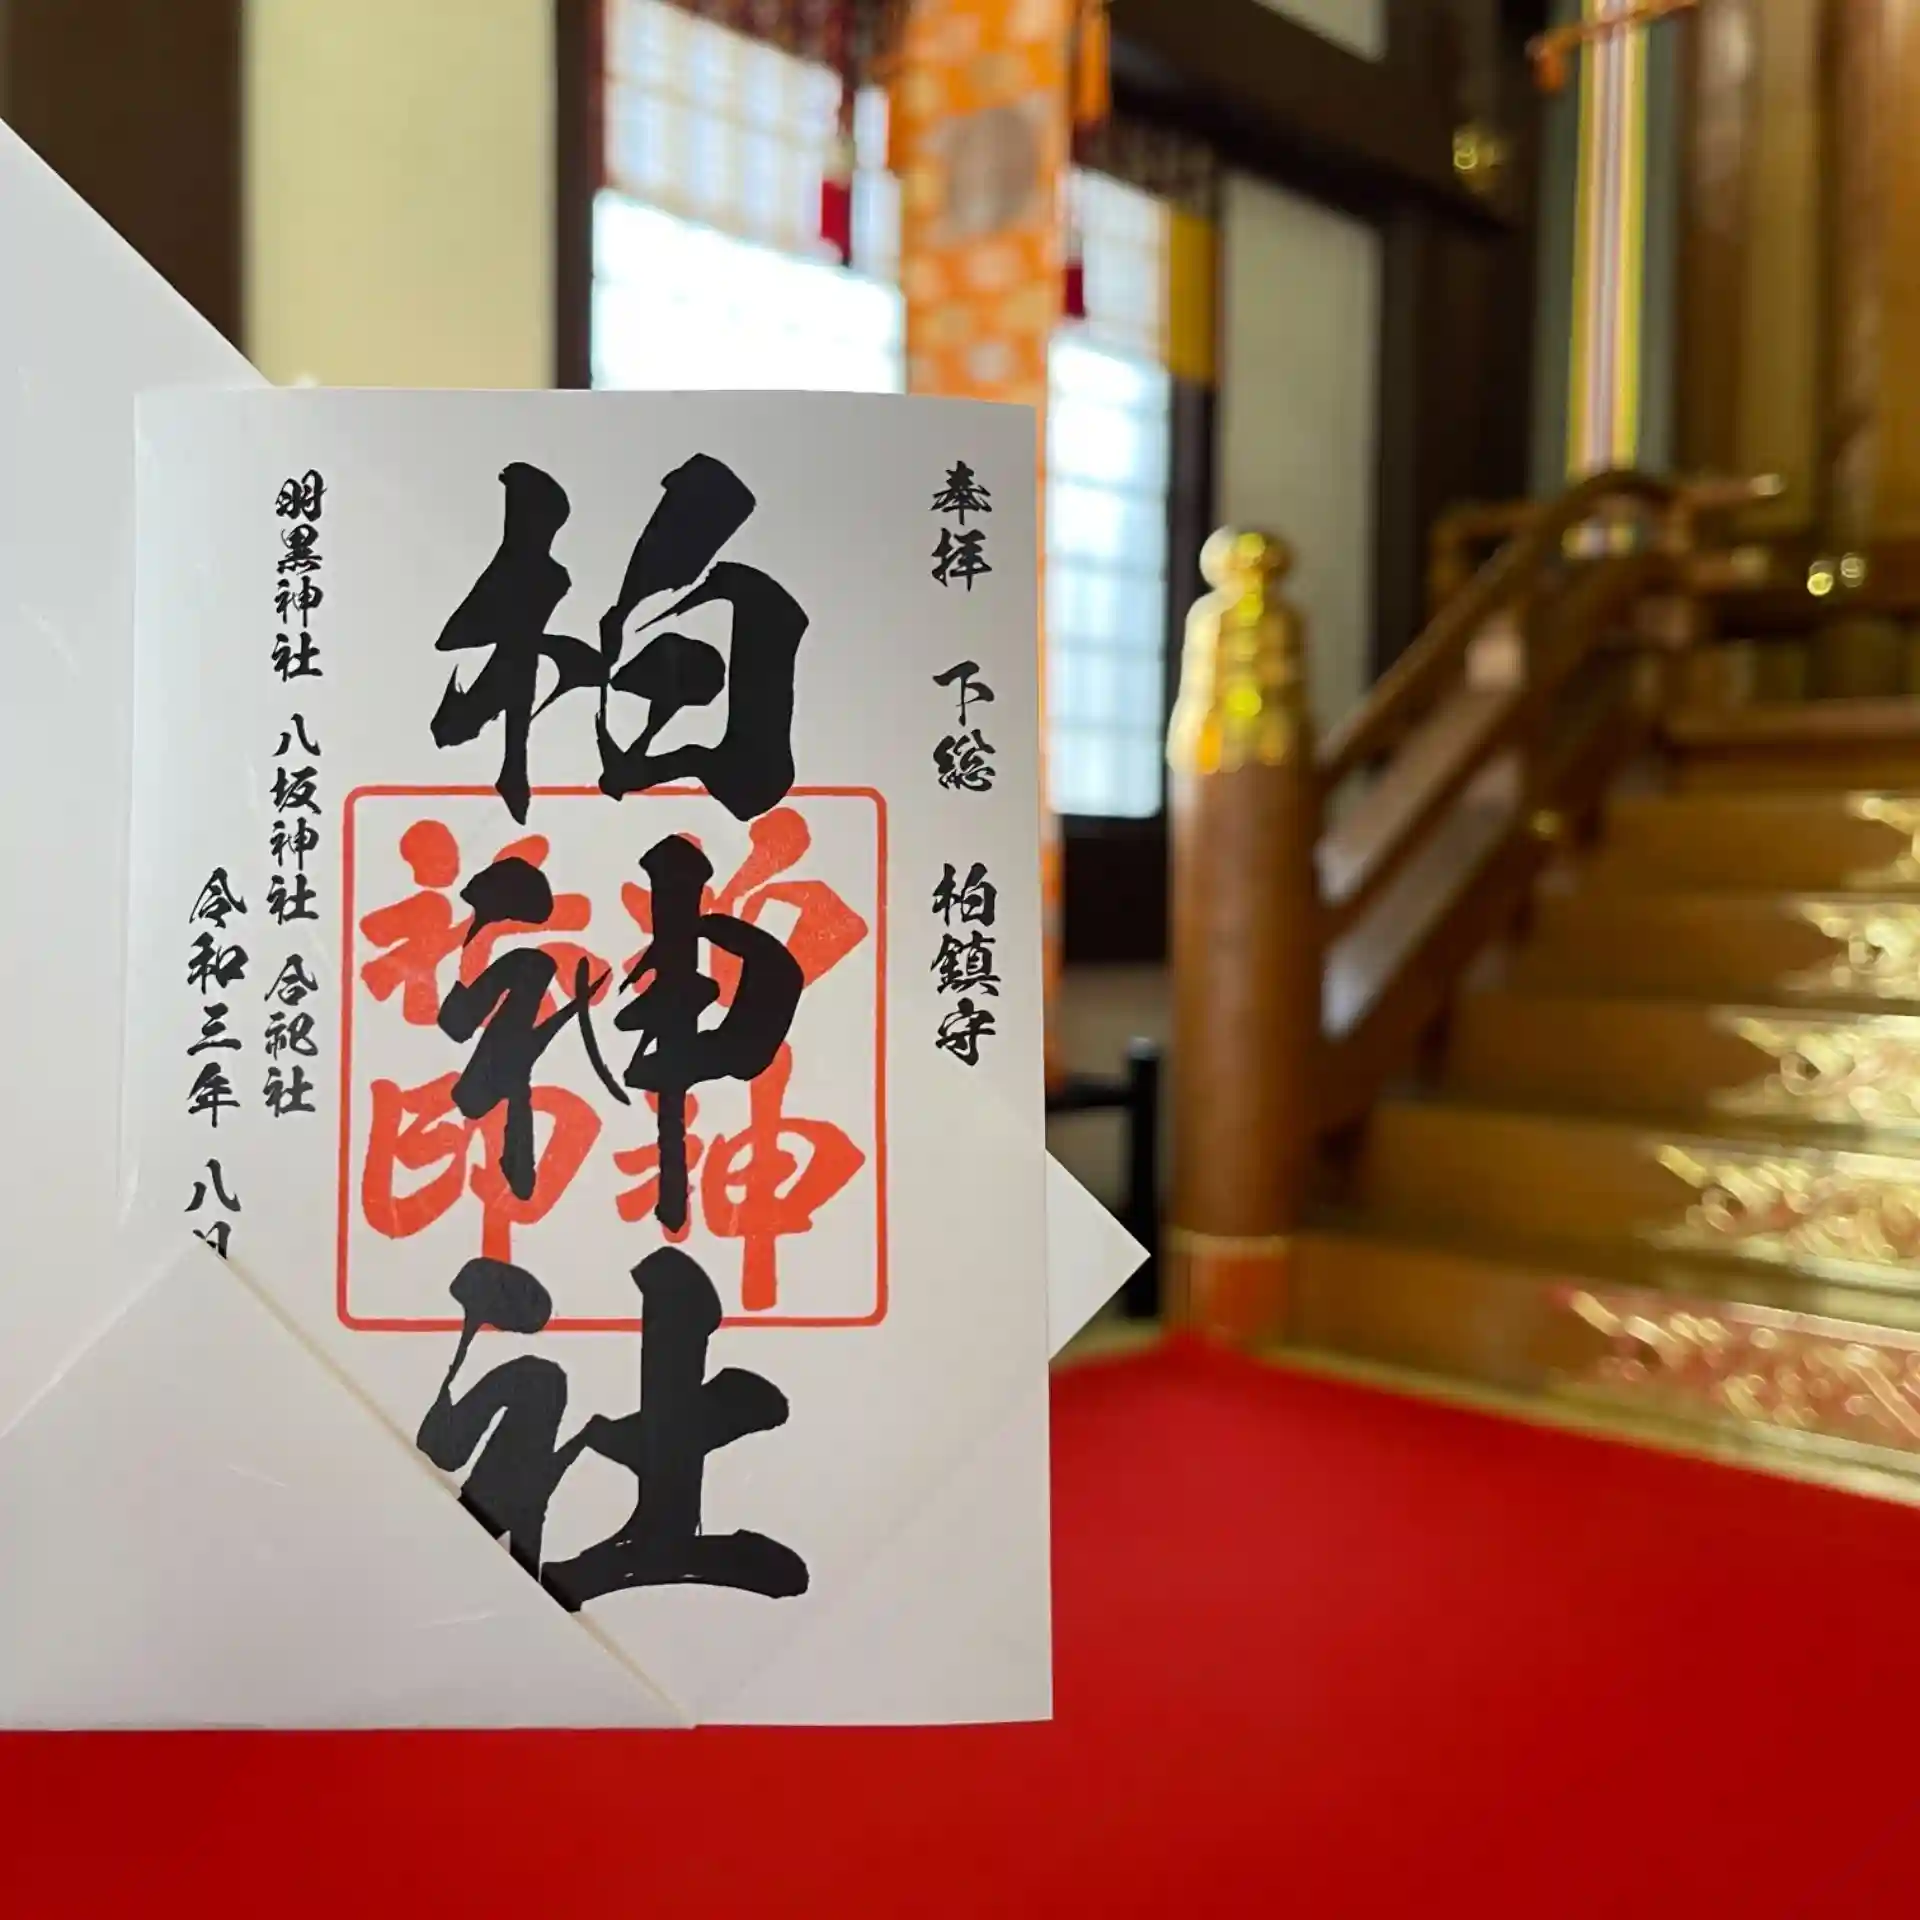 奉拝 下総 柏鎮守
柏神社
柏神社印
羽黒神社 八坂神社 合祀社
令和三年 八月